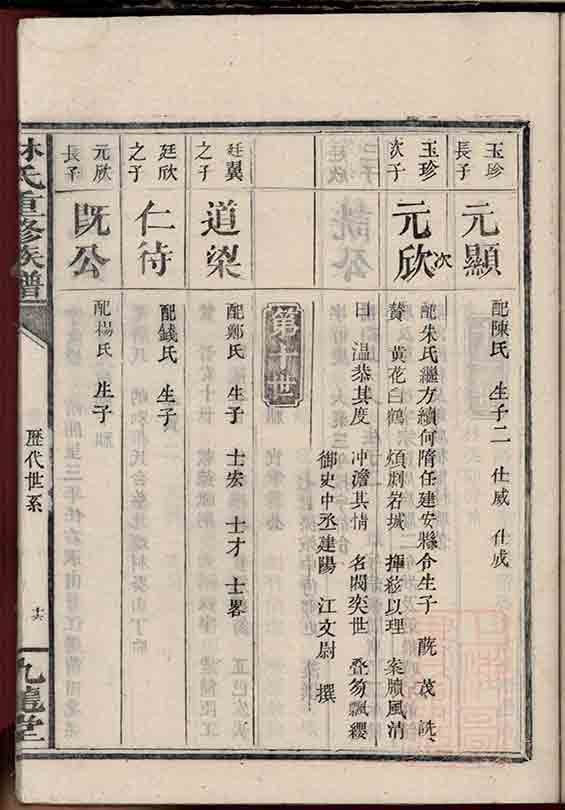 玉珍長子
元顯
配陳氏 生子二 仕威 仕成
玉珍次子
元欣次
配朱氏繼方續何隋任建安縣令生子 酕 茂 詵
贊 黃花白鶴 煩剧岩城 揮絃以理 案牘風清
曰 温恭其度 冲澹其情 名閥奕世 叠笏飄纓
御史中丞建陽 江文尉 撰
第十世
廷翼之子
道梁
配鄭氏 生子 士宏 士才 士畧
廷欣之子
仁待
配錢氏 生子
元欣長子
既公
配楊氏 生子
林氏重修族譜
歷代世系
十六
九龍堂